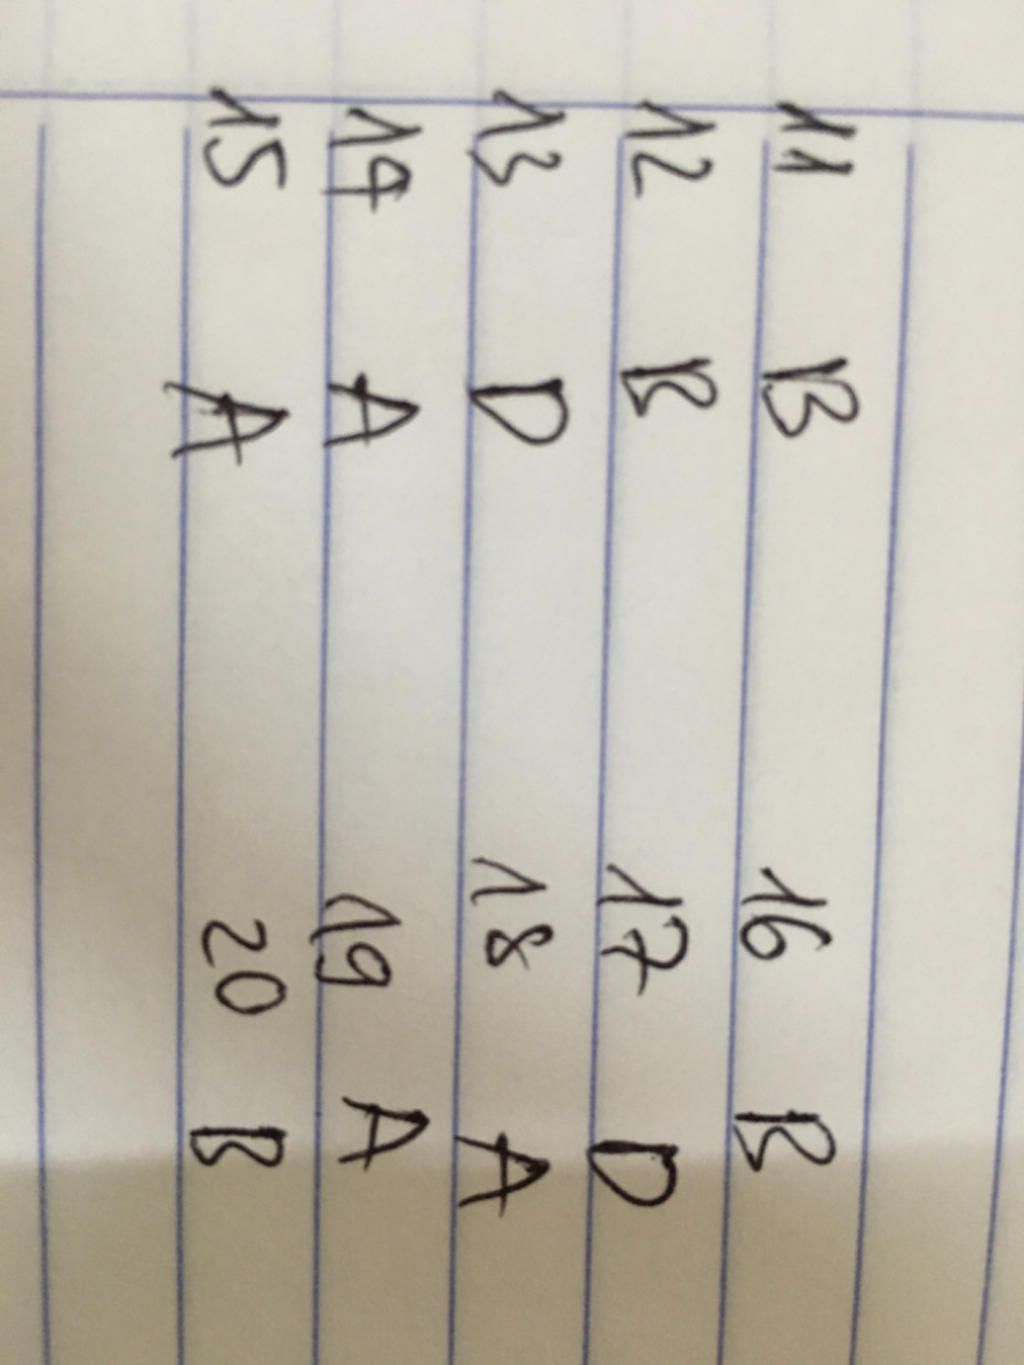 11 B 16 B
12 B 17 D
13 D 18 A
14 A 19 A
15 A 20 B